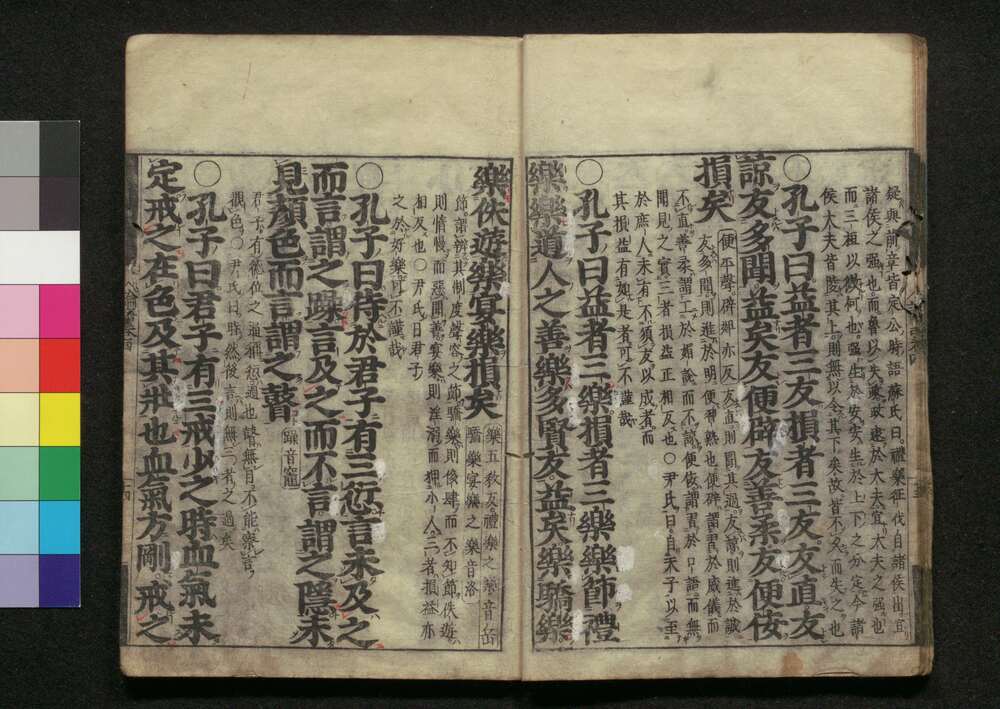 疑與前章皆定公時語蘇氏曰禮樂征伐自諸侯出宜
諸侯之强也而魯以失政政逮於大夫宜大夫之强也
而三桓以微何也强生於安安生於上下之分定今諸
侯大夫皆陵其上則無以令其下矣故皆不久而失之也
○孔子曰益者三友損者三友友直友
諒友多聞益矣友便辟友善柔友便佞
損矣
便平聲辟婢亦反友直則聞其過友諒則進於誠
友多聞則進於明便習熟也便辟謂習於威儀而
不直善柔謂工於媚說而不諒便佞謂習於口語而無
聞見之實三者損益正相反也○尹氏曰自天子以至
於庶人未有不須友以成者而
其損益有如是者可不謹哉
○孔子曰益者三樂損者三樂樂節禮
樂樂道人之善樂多賢友益矣樂驕樂
樂佚遊樂宴樂損矣
樂五教反禮樂之樂音岳
驕樂宴樂之樂音洛
節謂辨其制度聲容之節驕樂則侈肆而不知節佚遊
則惰慢而惡聞善宴樂則淫溺而狎小人三者損益亦
相反也○尹氏曰君子
之於好樂可不謹哉
○孔子曰侍於君子有三愆言未及之
而言謂之躁言及之而不言謂之隱未
見顏色而言謂之瞽
躁音竈
君子有德位之通稱愆過也瞽無目不能察言
觀色○尹氏曰時然後言則無三者之過矣
○孔子曰君子有三戒少之時血氣未
定戒之在色及其壯也血氣方剛戒之